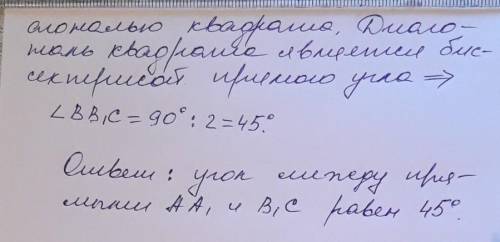 агональю квадрата. Диаго-
наль квадрата является бис-
сектрисой прямого угла ⇒
∠BB₁C = 90° : 2 = 45°.
Ответ: угол между пря-
мыми AA₁ и B₁C равен 45°.